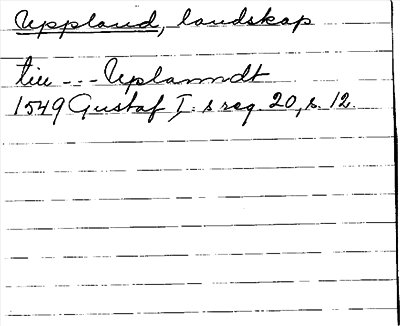 Uppland, landskap
till --- Uplanndt
1549 Gustaf I. s reg. 20, s. 12.